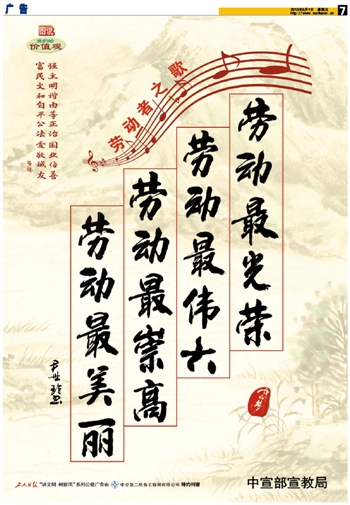 广告
7
图说
我们的
价值观
富强 民主 文明 和谐
自由 平等 公正 法治
爱国 敬业 诚信 友善
劳动者之歌
劳动最光荣
劳动最伟大
劳动最崇高
劳动最美丽
工人日报 “讲文明 树新风”系列公益广告由 中交第二航务工程局有限公司 特约刊登
中宣部宣教局